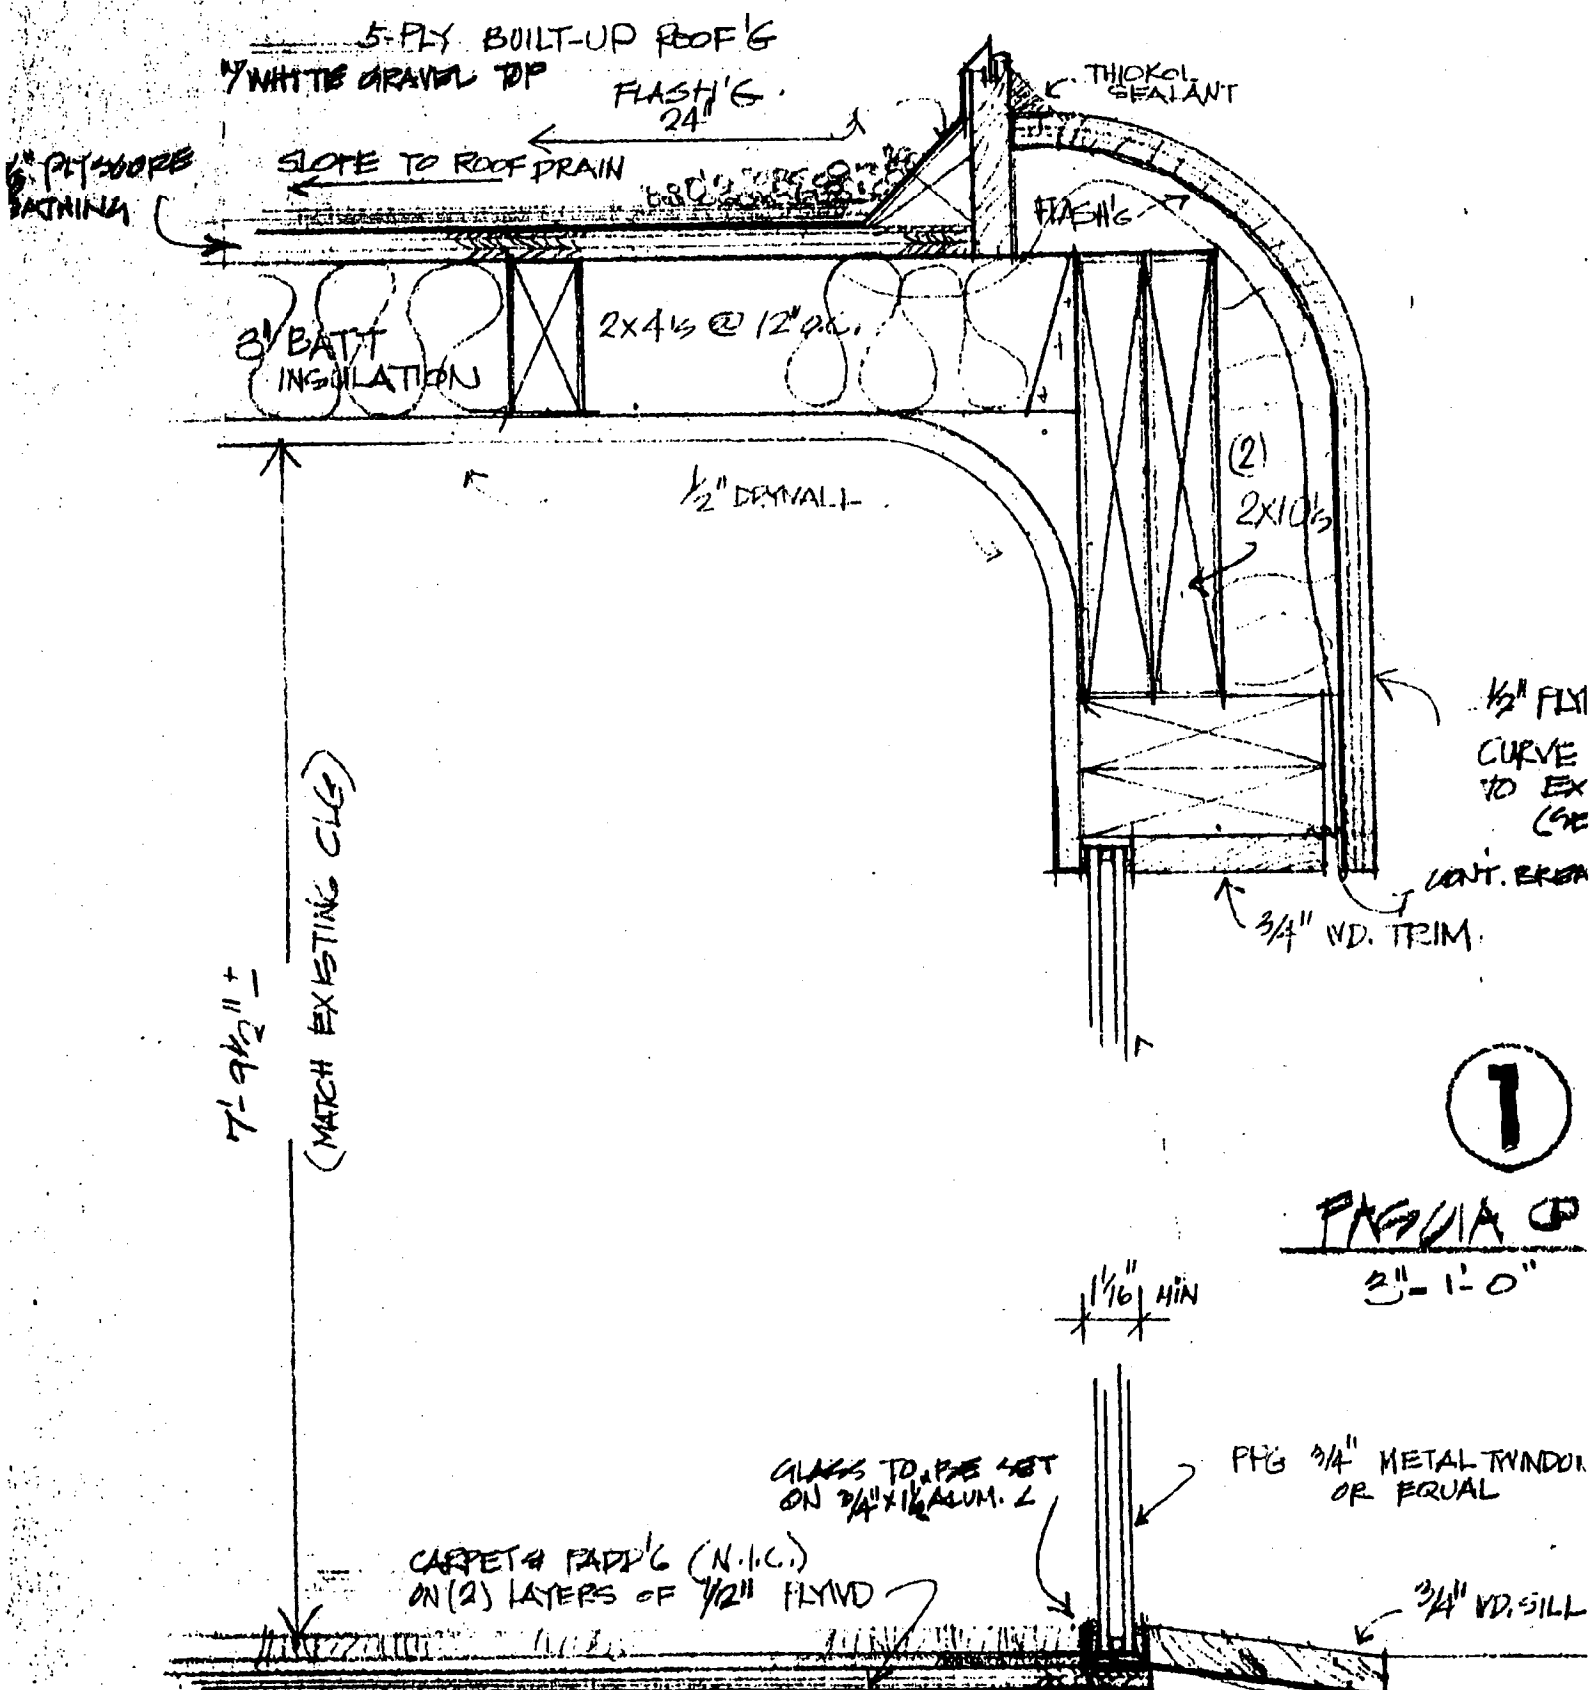 5-PLY BUILT-UP ROOF'G
W/ WHITE GRAVEL TOP
FLASH'G
24"
THIOKOL
SEALANT
SLOPE TO ROOF DRAIN
FLASH'G
3" BATT
INSULATION
2x4's @ 12" o.c.
1/2" DRYWALL
(2)
2x10's
1/2" PLY
CURVE
TO EX
(SE
CONT. BREA
3/4" WD. TRIM
7'-9 1/2" ±
(MATCH EXISTING CLG)
1
FASCIA
3"-1'-0"
1 1/16" MIN
GLASS TO BE SET
ON 3/4" x 1 1/2 ALUM. L
PPG 3/4" METAL TWINDOW
OR EQUAL
CARPET & PADD'G (N.I.C.)
ON (2) LAYERS OF 1/2" PLYWD
3/4" WD. SILL